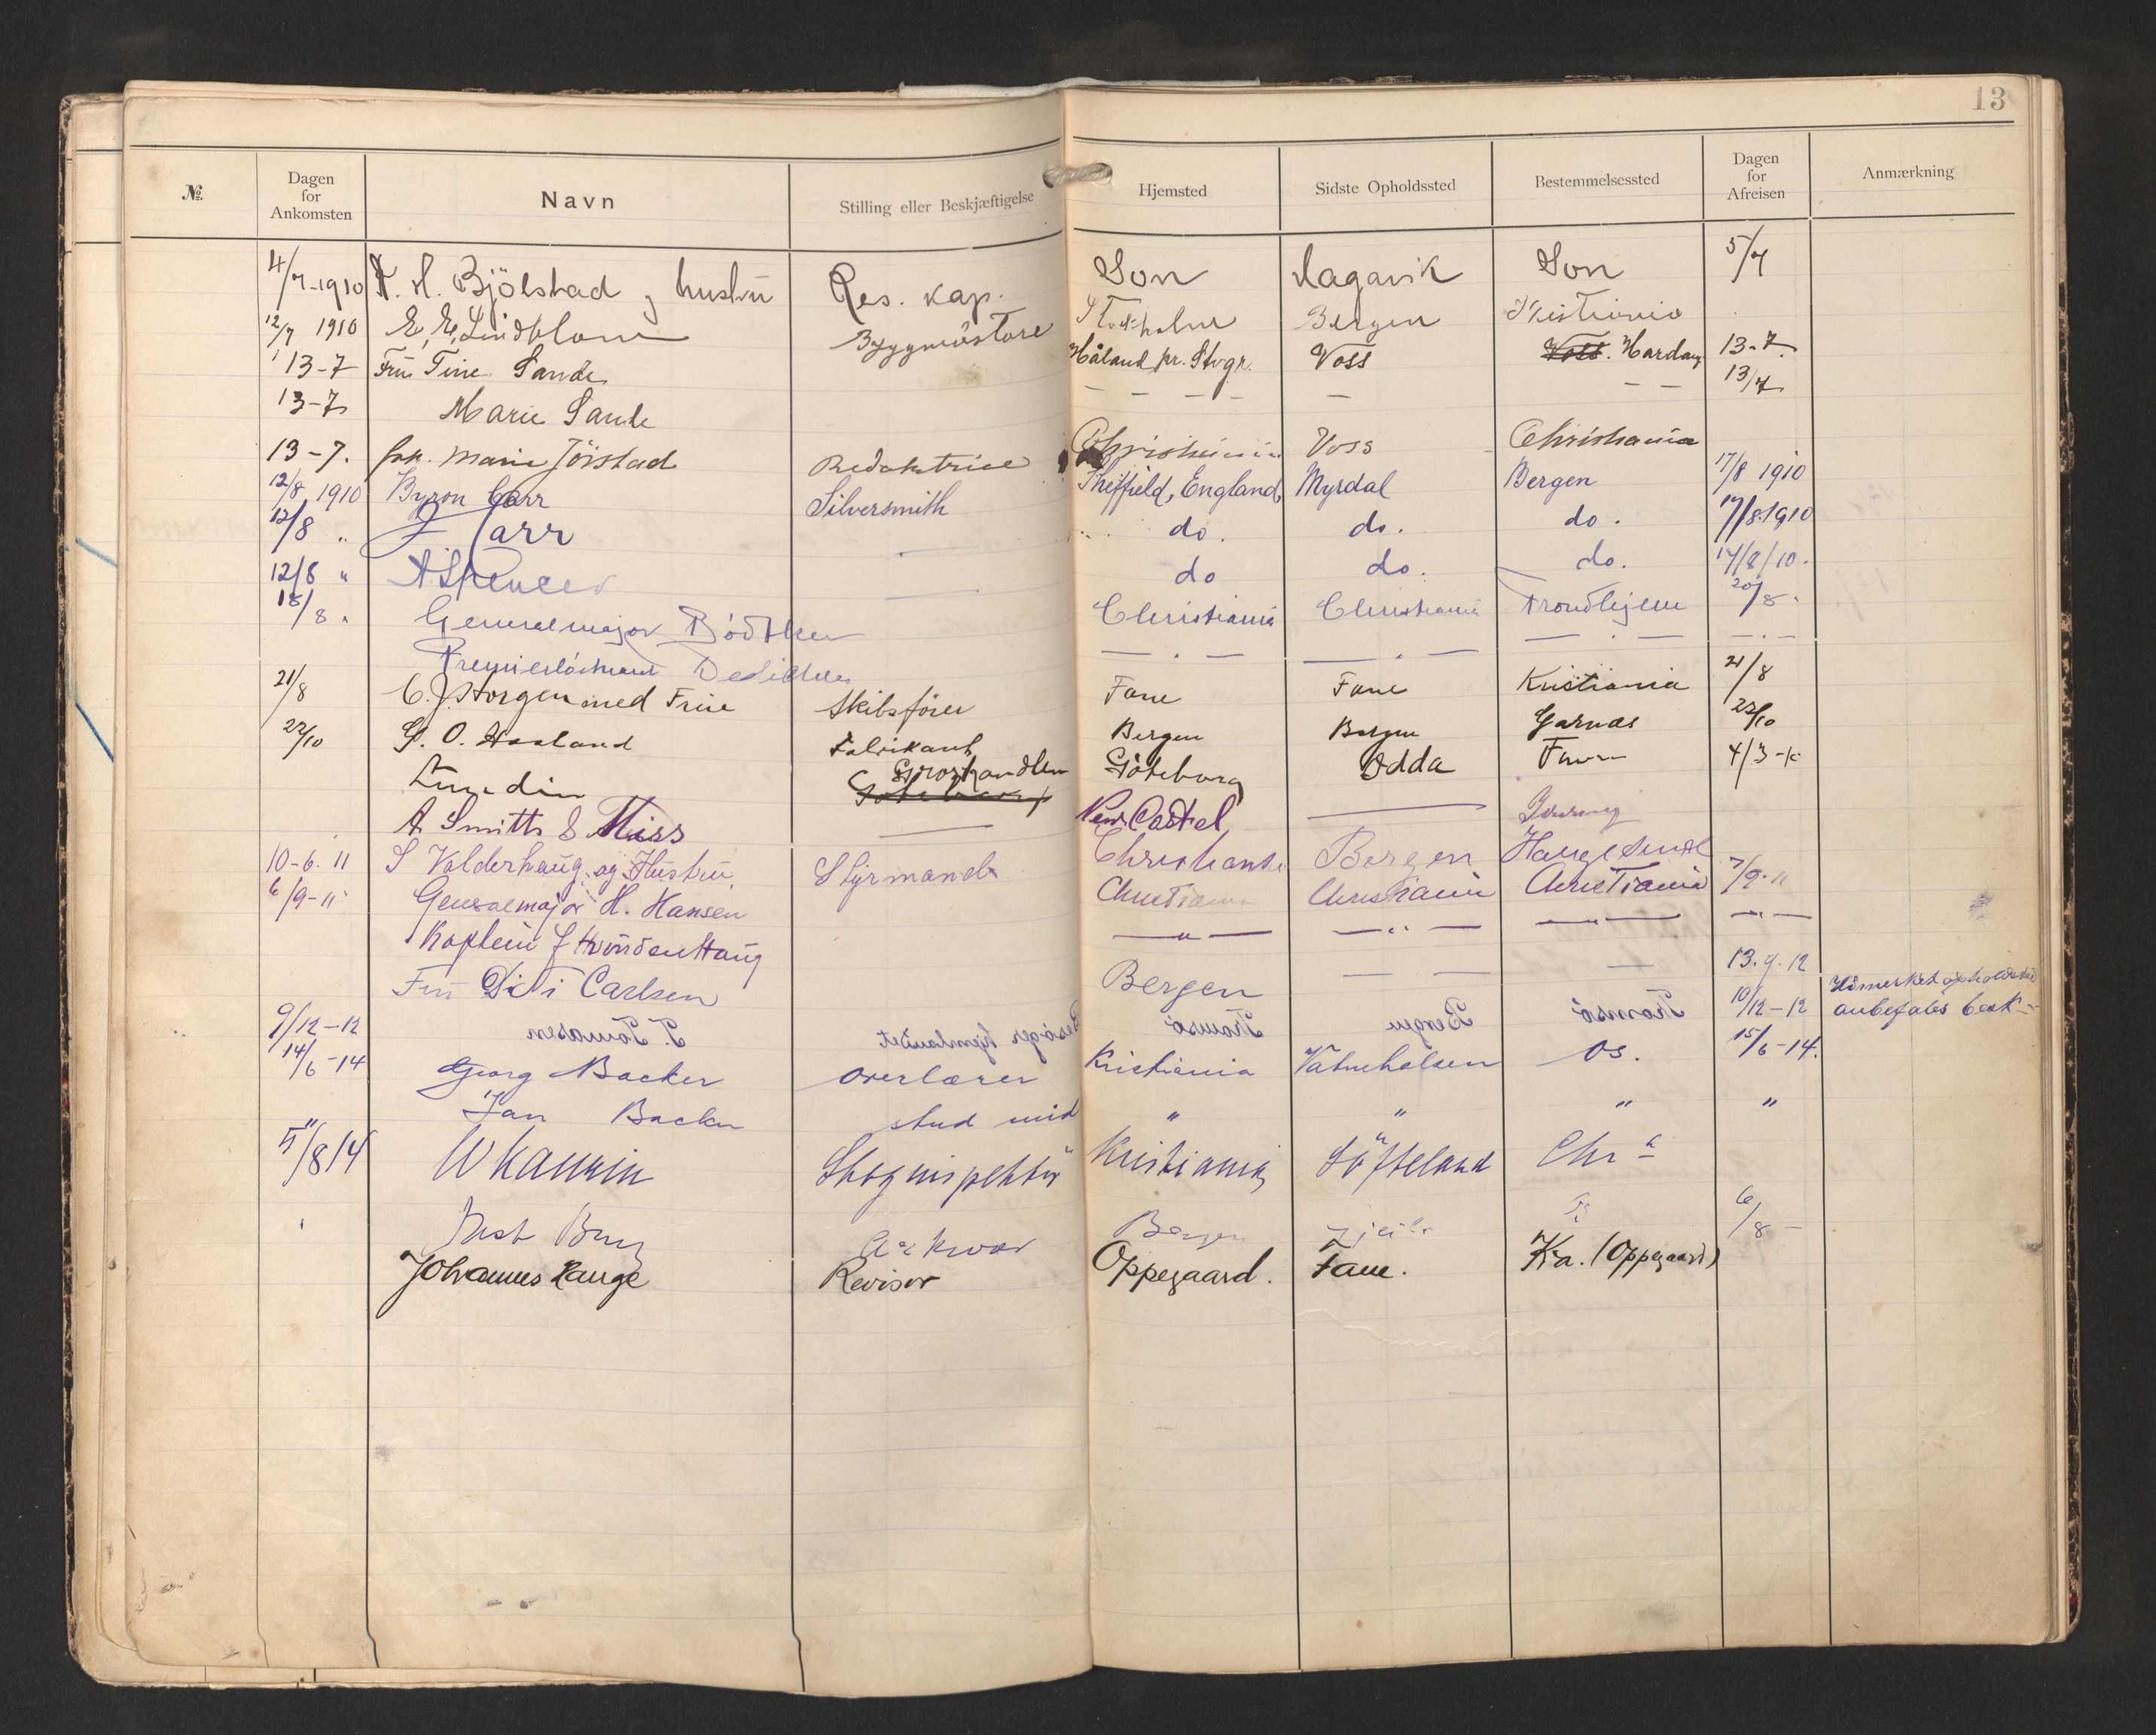 13
№ Dagen for Ankomsten Navn Stilling eller Beskjæftigelse Hjemsted Sidste Opholdssted Bestemmelsessted Dagen for Afreisen Anmærkning
4/7-1910 H. Bjölstad hustru Res. kap. Son Hagavik Son 5/7
12/7 1910 E. E. Lindblom Byggmästare Stockholm Bergen Kristiania
13-7 Fru Tine Sande Håland pr. Stvgr. Voss Voss. Hardang 13-7
13-7 Marie Sande — — — — — — — 13/7
13-7. Frk. Marie Jörstad Redaktrice Christiania Voss Christiania
12/8 1910 Byron Carr Silversmith Sheffield, England, Myrdal Bergen 17/8 1910
12/8 " Carr — do. do. do. 17/8.1910
12/8 " A Spencer — do do. do. 17/8/10.
18/8 " Generalmajor Bödtker Christiania Christiania Trondhjem 20/8.
Premierlöitnant Dedichen — " — — " — — " — — " —
21/8 C. J. Storgen med Frue Skibsförer Fane Fane Kristiania 21/8
22/10 O. Haaland Fabrikant Bergen Bergen Garnæs 22/10
Lundin Groshandler Göteborg Göteborg Odda 4/3
A Smith & Miss — New Castel —
10-6. 11 S Valderhaug og Hustru Styrmand Christiansu Bergen Haugesund
6/9-11 Generalmajor H. Hansen Christiania Christiania Christiania 7/9-11
Kaptein — " — — " — — " — — " —
Fru Didi Carlsen Bergen — — — 13.9.12
9/12-12 P. Tomasen Besöger hjemlandet Tromsö Bergen Tromsö 10/12-12 Udmerket opholdssted anbefales
14/6-14 Georg Backer Overlærer Kristiania Vatnehalsen Os. 15/6-14.
" Jan Backer stud med " " " "
5/8 14 Skoginspektör Kristiania Söfteland Chr a
Bergen 6/8 -
Johannes Hauge Revisor Oppegaard. Fane. Kra. (Oppegaard)